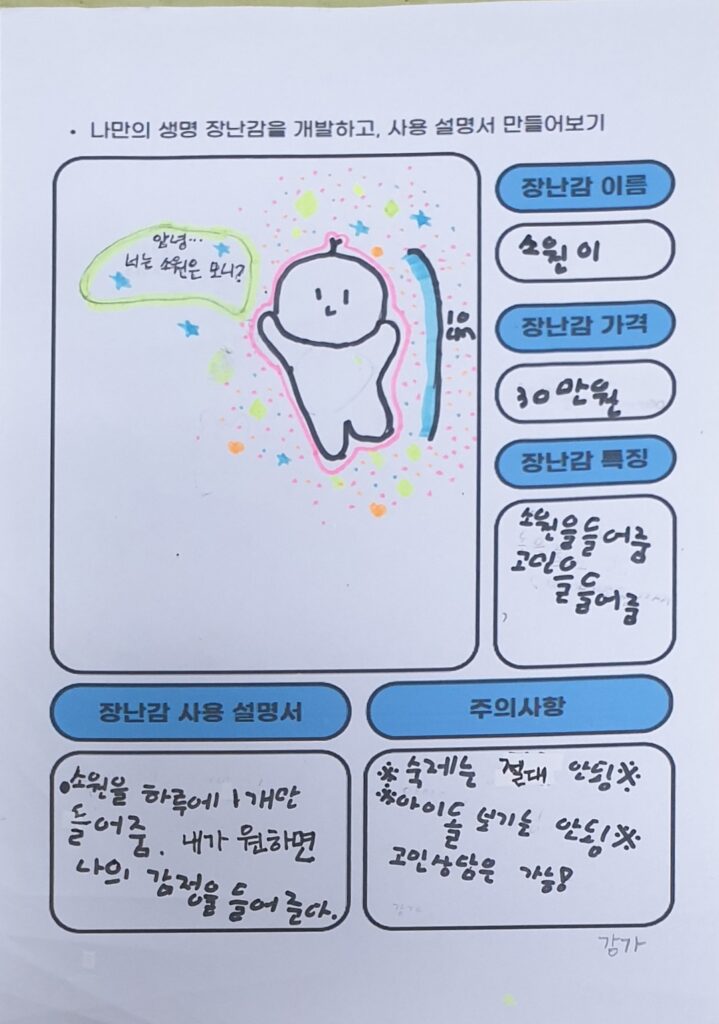 • 나만의 생명 장난감을 개발하고, 사용 설명서 만들어보기
안녕...
너는 소원은 모니?
10cm
장난감 이름
소원이
장난감 가격
30만원
장난감 특징
소원을 들어줌
고민을
들어줌
장난감 사용 설명서
소원을 하루에 1개만
들어줌. 내가 원하면
나의 감정을 들어준다.
주의사항
※숙제는 절대 안됨※
※아이돌 보기는 안됨※
고민상담은 가능!
감가